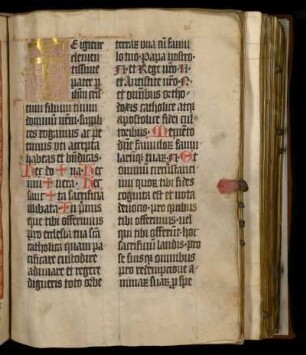 E igitur
clemen
tissime
pater p
ihm xm
tuu filium tuum
dominu nrm supli
ces rogamus ac pe
timus vti accepta
habeas et bndicas
hec do + na hec
mu + nera hec
sancta + sacrificia
illibata In primis
que tibi offerimus
pro ecclesia tua sca
catholica quam pa
cificare custodire
adunare et regere
digneris toto orbe
terraru vna cu famu
lo tuo papa nostro
N et Rege nro N
et Antistite nro N
et omnibus ortho
doxis catholice atqz
apostolice fidei cul
toribus Memeto
dne famuloru famu
larumqz tuaru N Et
omnium circustanci
um quoru tibi fides
cognita est et nota
deuocio pro quibus
tibi offerimus uel
qui tibi offerunt hoc
sacrificiu laudis pro
se suisqz omnibus
pro redempcione a
nimaru suaru p spe